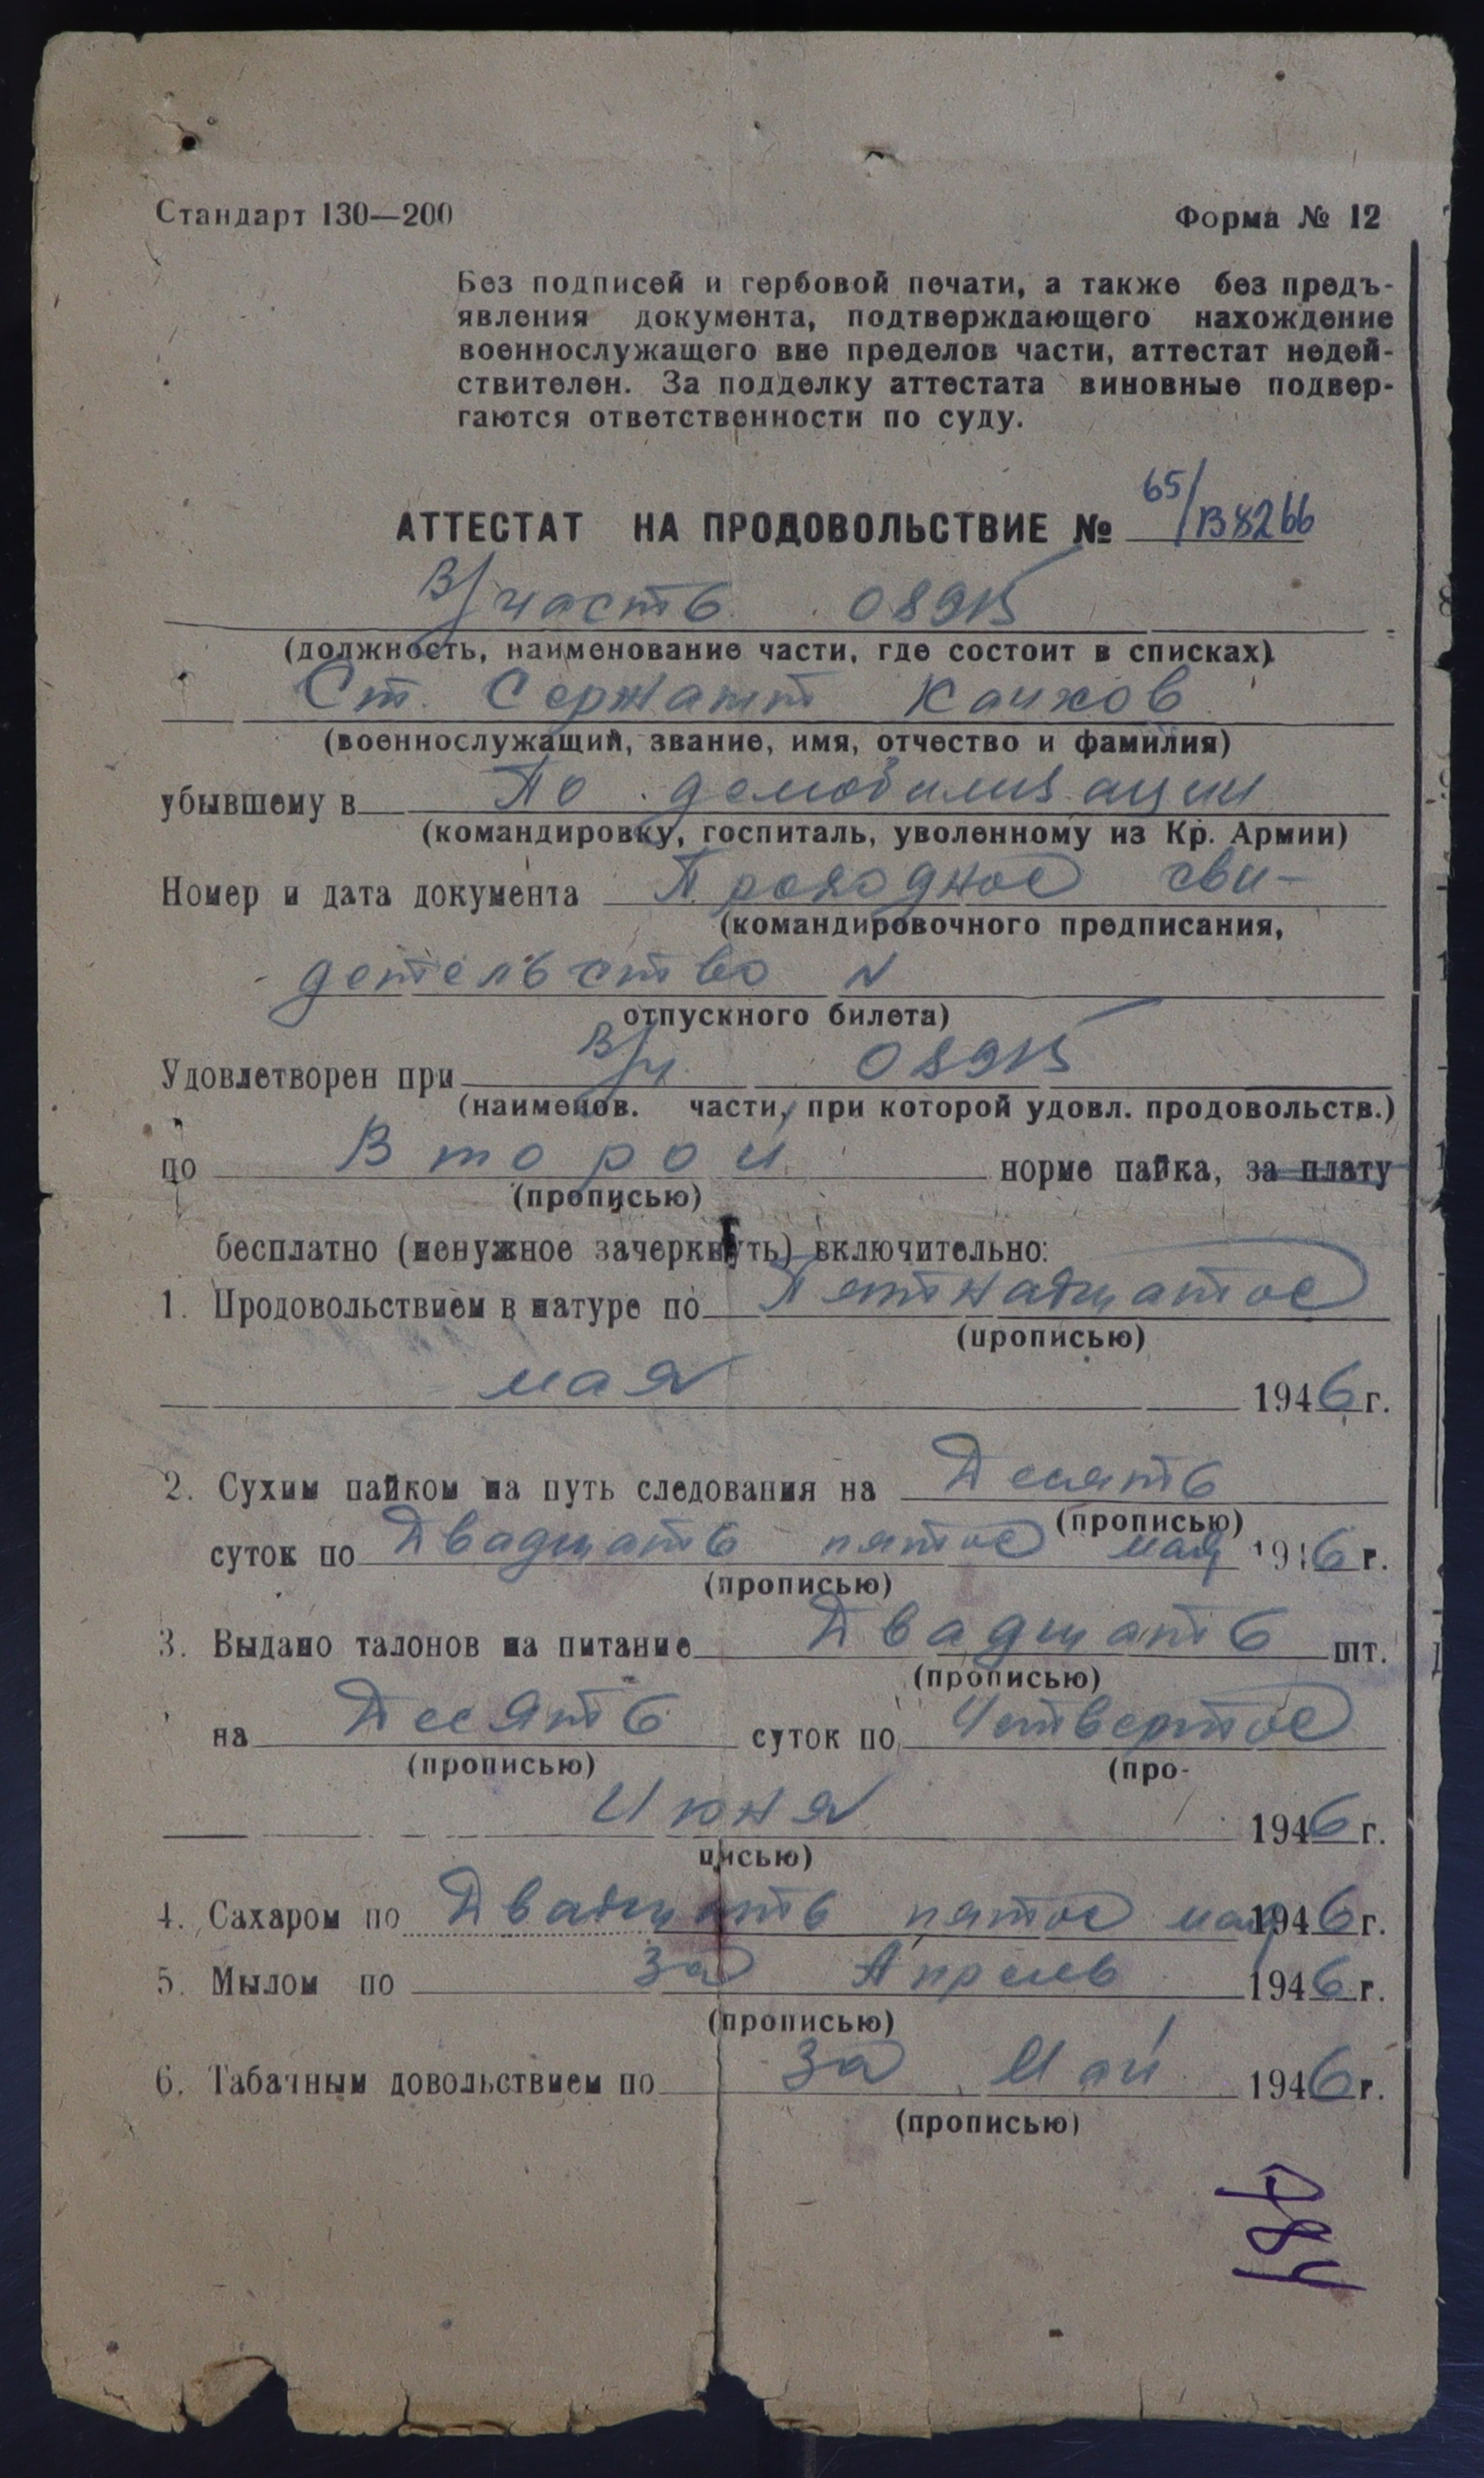 Стандарт 130—200
Форма № 12
Без подписей и гербовой печати, а также без предъ-
явления документа, подтверждающего нахождение
военнослужащего вне пределов части, аттестат недей-
ствителен. За подделку аттестата виновные подвер-
гаются ответственности по суду.
65/
АТТЕСТАТ НА ПРОДОВОЛЬСТВИЕ № В8266
В/часть 08915
(должность, наименование части, где состоит в списках)
Ст. Сержант Каихов
(военнослужащий, звание, имя, отчество и фамилия)
убывшему в По демобилизации
(командировку, госпиталь, уволенному из Кр. Армии)
Номер и дата документа Проходное сви-
(командировочного предписания,
детельство №
отпускного билета)
Удовлетворен при в/ч 08915
(наименов. части, при которой удовл. продовольств.)
по Второй норме пайка, за плату
(прописью)
бесплатно (ненужное зачеркнуть) включительно:
1. Продовольствием в натуре по Пятнадцатое
(прописью)
мая 1946 г.
2. Сухим пайком на путь следования на Десять
(прописью)
суток по Двадцать пятое мая 1946 г.
(прописью)
3. Выдано талонов на питание Двадцать шт.
(прописью)
на Десять суток по Четвертое
(прописью) (про-
Июня 1946 г.
писью)
4. Сахаром по Двадцать пятое мая 1946 г.
5. Мылом по За Апрель 1946 г.
(прописью)
6. Табачным довольствием по За Май 1946 г.
(прописью)